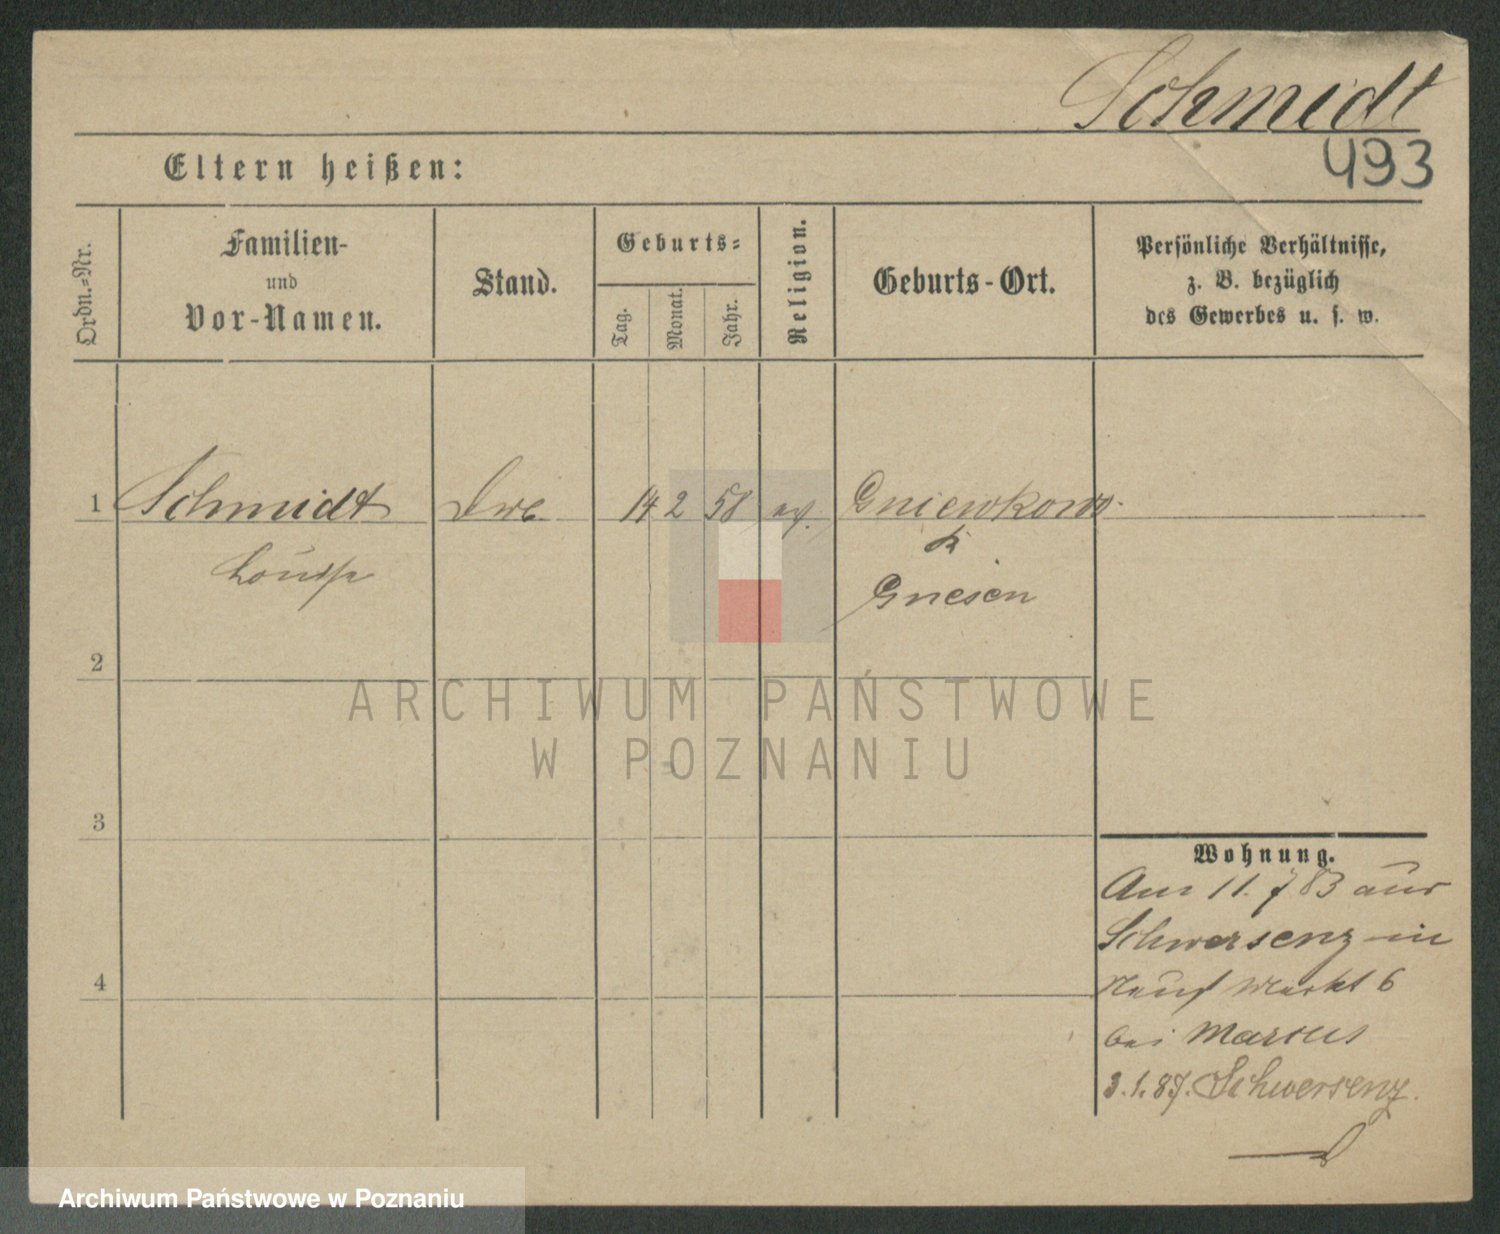 Schmidt
493
Eltern heißen:
Ordn.=Nr.
Familien-
und
Vor-Namen.
Stand.
Geburts=
Tag.
Monat.
Jahr.
Religion.
Geburts-Ort.
Persönliche Verhältnisse,
z. B. bezüglich
des Gewerbes u. s. w.
1 Schmidt 14 2 58 Gniewkowo
Louise
Gnesen
2
3
4
ARCHIWUM PAŃSTWOWE
W POZNANIU
Wohnung.
Am 11. 7 83 aus
Schwersenz in
Markt 6
bei
3.1.87. Schwersenz.
Archiwum Państwowe w Poznaniu